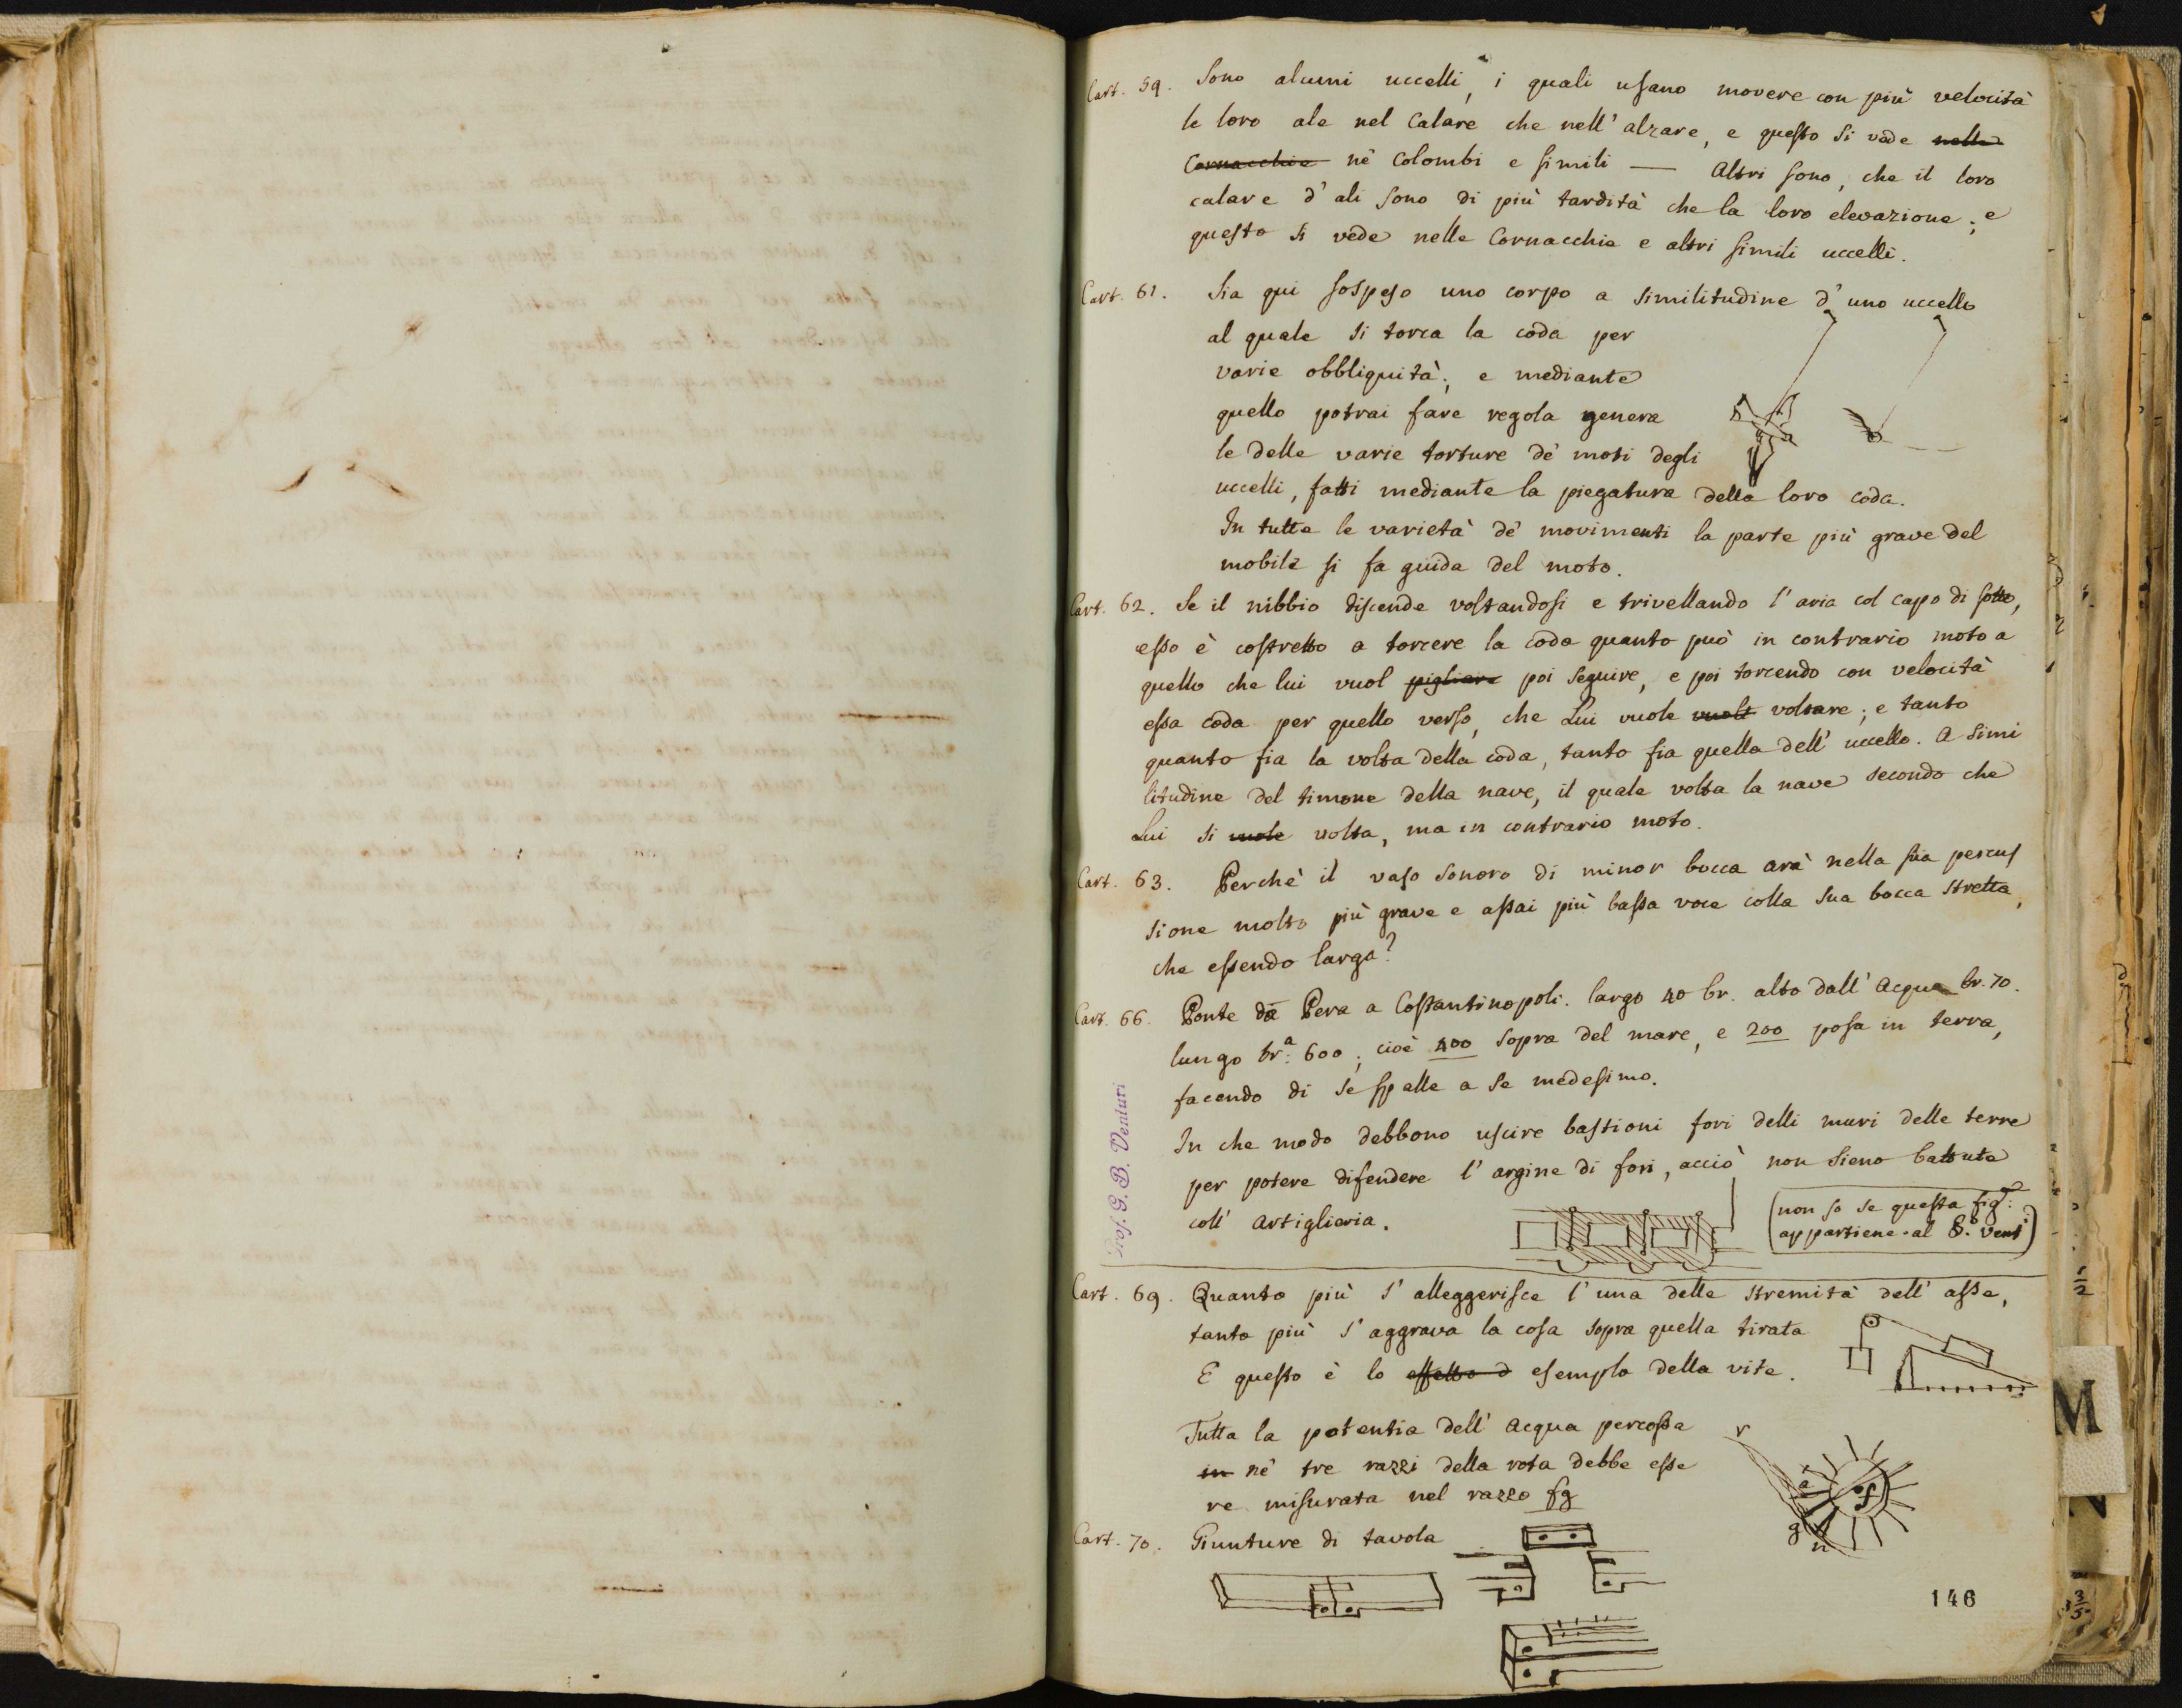 Cart. 59. Sono alcuni uccelli, i quali usano movere con più velocità
le loro ale nel Calare che nell' alzare, e questo si vede nelle
Cornacchie nè Colombi e simili — Altri sono, che il loro
calare d' ali sono di più tardità che la loro elevazione; e
questo si vede nelle Cornacchie e altri simili uccelli.
Cart. 61. Sia qui sospeso uno corpo a similitudine d' uno uccello
al quale si torca la coda per
varie obbliquità; e mediante
quello potrai fare regola genera
le delle varie torture de' moti degli
uccelli, fatti mediante la piegatura della loro coda.
In tutte le varietà de' movimenti la parte più grave del
mobile si fa guida del moto.
Cart. 62. Se il nibbio discende voltandosi e trivellando l' aria col capo di sotto,
esso è costretto a torcere la coda quanto può in contrario moto a
quello che lui vuol pigliare poi seguire, e poi torcendo con velocità
essa coda per quello verso, che Lui vuole vuolt voltare; e tanto
quanto fia la volta della coda, tanto fia quella dell' uccello. A simi
litudine del timone della nave, il quale volta la nave secondo che
Lui si vuole volta, ma in contrario moto.
Cart. 63. Perchè il vaso sonoro di minor bocca arà nella sua percus
sione molto più grave e assai più bassa voce colla sua bocca stretta,
che essendo larga?
Cart. 66. Ponte da Pera a Costantinopoli. largo 40 br. alto dall' acqua br. 70.
lungo br.a 600; cioè 400 sopra del mare, e 200 posa in terra,
facendo di se spalle a se medesimo.
In che modo debbono uscire bastioni fori delli muri delle terre
per potere difendere l' argine di fori, acciò non sieno battute
coll' Artiglieria.
(non so se questa fig.a
appartiene al §.o
Prof. G. B. Venturi
Cart. 69. Quanto più s' alleggerisce l' una delle stremità dell' asse,
tanto più s' aggrava la cosa sopra quella tirata
E questo è lo effetto d esemplo della vite.
Tutta la potentia dell' acqua percossa
in nè tre razzi della rota debbe esse
re misurata nel razzo fg
r
a
f
g
n
Cart. 70. Giunture di tavola
146
M